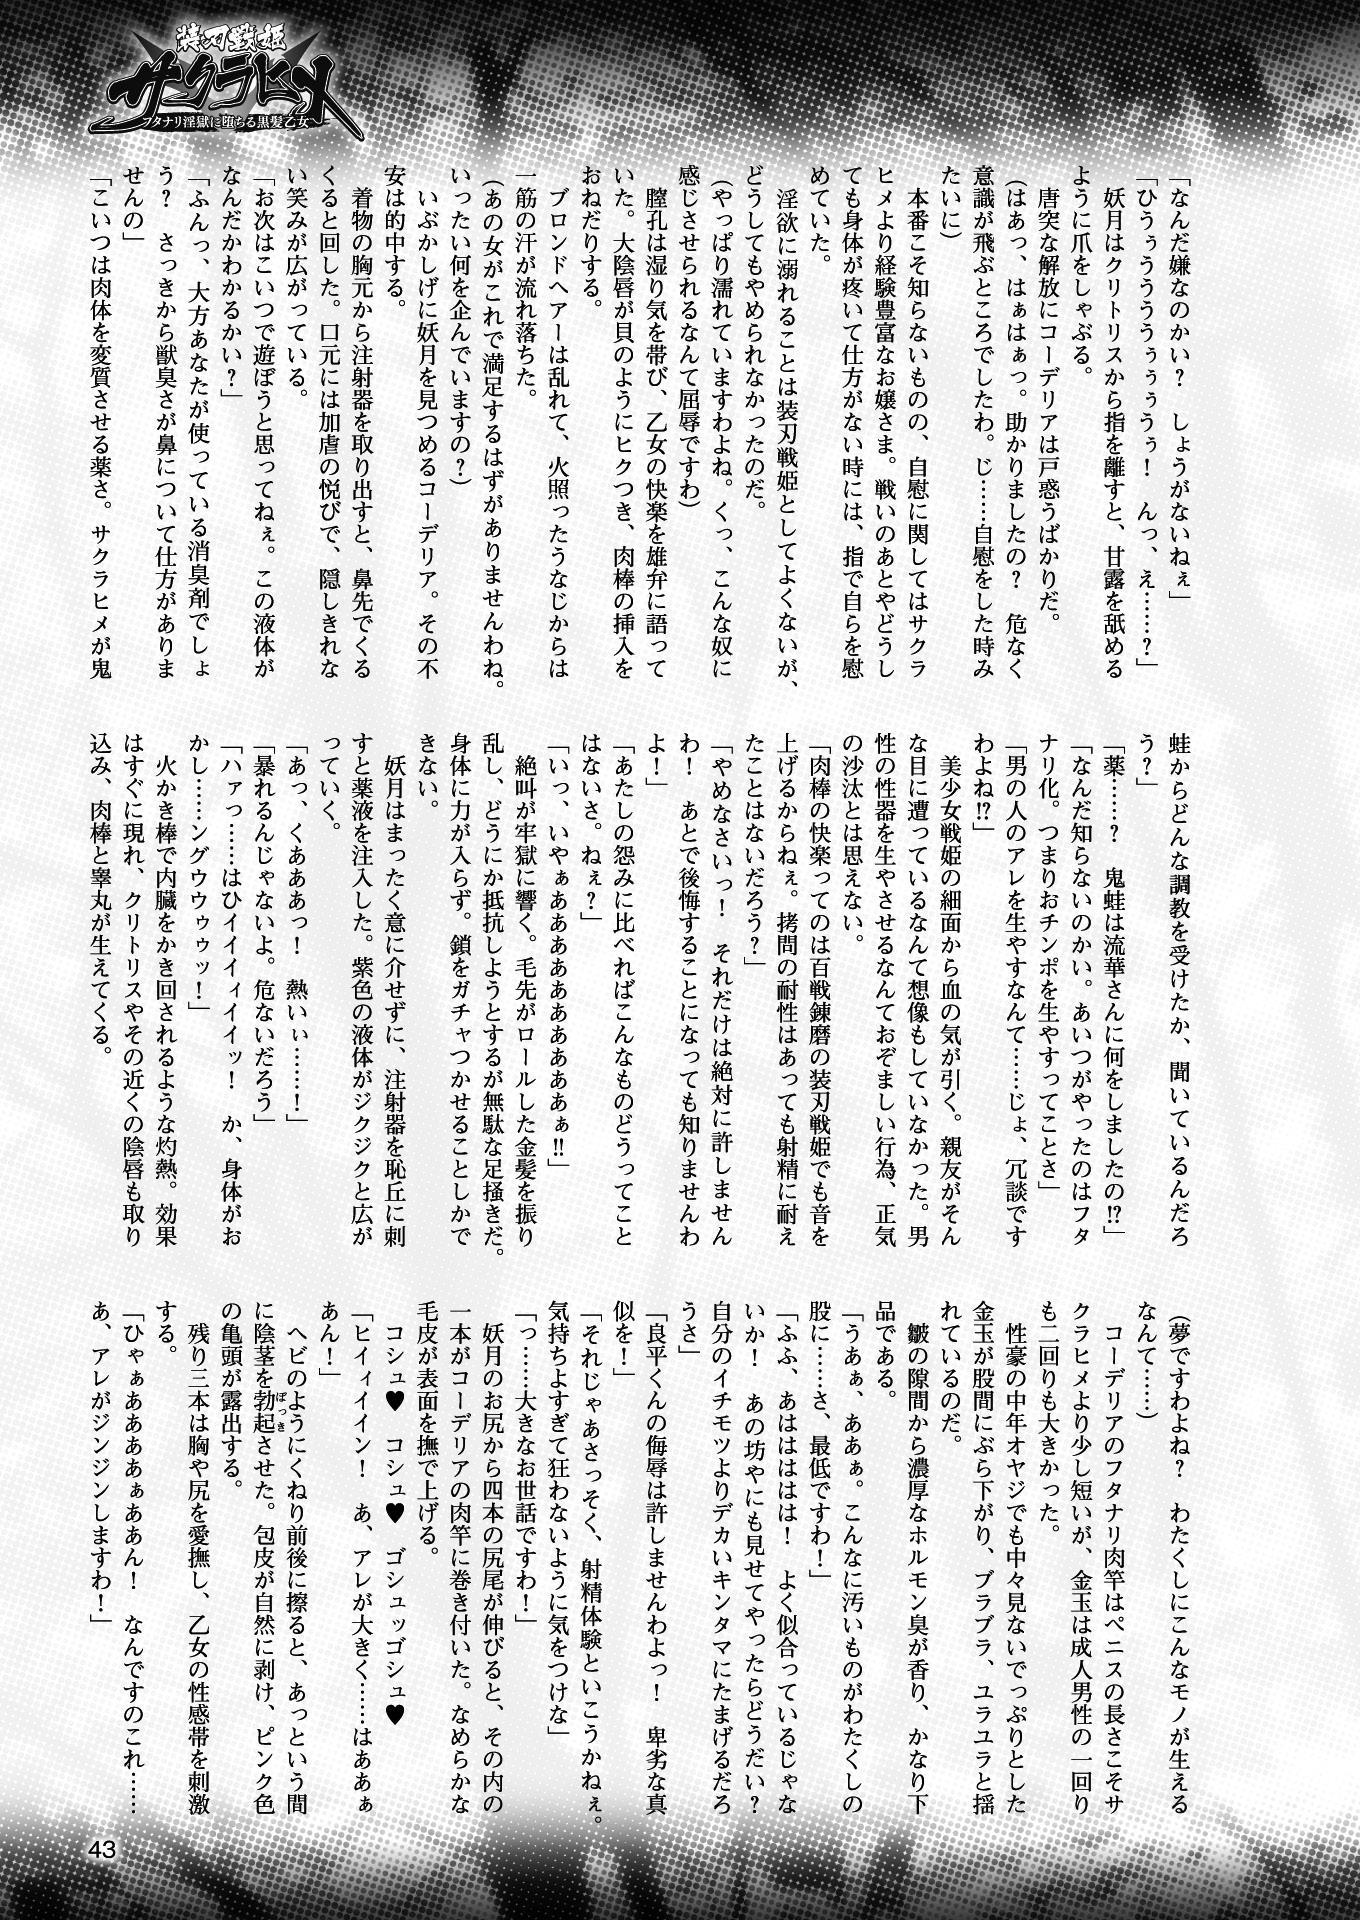 装刃戦姫
サクラヒメ
フタナリ淫獄に堕ちる黒髪乙女
「なんだ嫌なのかい？　しょうがないねぇ」
「ひうぅぅうううぅぅぅうぅ！　んっ、え……？」
　妖月はクリトリスから指を離すと、甘露を舐める
ように爪をしゃぶる。
　唐突な解放にコーデリアは戸惑うばかりだ。
（はあっ、はぁはぁっ。助かりましたの？　危なく
意識が飛ぶところでしたわ。じ……自慰をした時み
たいに）
　本番こそ知らないものの、自慰に関してはサクラ
ヒメより経験豊富なお嬢さま。戦いのあとやどうし
ても身体が疼いて仕方がない時には、指で自らを慰
めていた。
　淫欲に溺れることは装刃戦姫としてよくないが、
どうしてもやめられなかったのだ。
（やっぱり濡れていますわよね。くっ、こんな奴に
感じさせられるなんて屈辱ですわ）
　膣孔は湿り気を帯び、乙女の快楽を雄弁に語って
いた。大陰唇が貝のようにヒクつき、肉棒の挿入を
おねだりする。
　ブロンドヘアーは乱れて、火照ったうなじからは
一筋の汗が流れ落ちた。
（あの女がこれで満足するはずがありませんわね。
いったい何を企んでいますの？）
　いぶかしげに妖月を見つめるコーデリア。その不
安は的中する。
　着物の胸元から注射器を取り出すと、鼻先でくる
くると回した。口元には加虐の悦びで、隠しきれな
い笑みが広がっている。
「お次はこいつで遊ぼうと思ってねぇ。この液体が
なんだかわかるかい？」
「ふんっ、大方あなたが使っている消臭剤でしょ
う？　さっきから獣臭さが鼻について仕方がありま
せんの」
「こいつは肉体を変質させる薬さ。サクラヒメが鬼
蛙からどんな調教を受けたか、聞いているんだろ
う？」
「薬……？　鬼蛙は流華さんに何をしましたの!?」
「なんだ知らないのかい。あいつがやったのはフタ
ナリ化。つまりおチンポを生やすってことさ」
「男の人のアレを生やすなんて……じょ、冗談です
わよね!?」
　美少女戦姫の細面から血の気が引く。親友がそん
な目に遭っているなんて想像もしていなかった。男
性の性器を生やさせるなんておぞましい行為、正気
の沙汰とは思えない。
「肉棒の快楽ってのは百戦錬磨の装刃戦姫でも音を
上げるからねぇ。拷問の耐性はあっても射精に耐え
たことはないだろう？」
「やめなさいっ！　それだけは絶対に許しません
わ！　あとで後悔することになっても知りませんわ
よ！」
「あたしの怨みに比べればこんなものどうってこと
はないさ。ねぇ？」
「いっ、いやぁあああああああああああぁ!!」
　絶叫が牢獄に響く。毛先がロールした金髪を振り
乱し、どうにか抵抗しようとするが無駄な足掻きだ。
身体に力が入らず。鎖をガチャつかせることしかで
きない。
　妖月はまったく意に介せずに、注射器を恥丘に刺
すと薬液を注入した。紫色の液体がジクジクと広が
っていく。
「あっ、くあああっ！　熱いぃ……！」
「暴れるんじゃないよ。危ないだろう」
「ハァっ……はひイイイィイイッ！　か、身体がお
かし……ングウウゥゥッ！」
　火かき棒で内臓をかき回されるような灼熱。効果
はすぐに現れ、クリトリスやその近くの陰唇も取り
込み、肉棒と睾丸が生えてくる。
（夢ですわよね？　わたくしにこんなモノが生える
なんて……）
　コーデリアのフタナリ肉竿はペニスの長さこそサ
クラヒメより少し短いが、金玉は成人男性の一回り
も二回りも大きかった。
　性豪の中年オヤジでも中々見ないでっぷりとした
金玉が股間にぶら下がり、ブラブラ、ユラユラと揺
れているのだ。
　皺の隙間から濃厚なホルモン臭が香り、かなり下
品である。
「うあぁ、ああぁ。こんなに汚いものがわたくしの
股に……さ、最低ですわ！」
「ふふ、あはははは！　よく似合っているじゃな
いか！　あの坊やにも見せてやったらどうだい？
自分のイチモツよりデカいキンタマにたまげるだろ
うさ」
「良平くんの侮辱は許しませんわよっ！　卑劣な真
似を！」
「それじゃあさっそく、射精体験といこうかねぇ。
気持ちよすぎて狂わないように気をつけな」
「っ……大きなお世話ですわ！」
　妖月のお尻から四本の尻尾が伸びると、その内の
一本がコーデリアの肉竿に巻き付いた。なめらかな
毛皮が表面を撫で上げる。
　コシュ♥　コシュ♥　ゴシュッゴシュ♥
「ヒイィイイン！　あ、アレが大きく……はああぁ
あん！」
　ヘビのようにくねり前後に擦ると、あっという間
に陰茎を勃起させた。包皮が自然に剥け、ピンク色
の亀頭が露出する。
　残り三本は胸や尻を愛撫し、乙女の性感帯を刺激
する。
「ひゃぁああああぁああん！　なんですのこれ……
あ、アレがジンジンしますわ！」
43